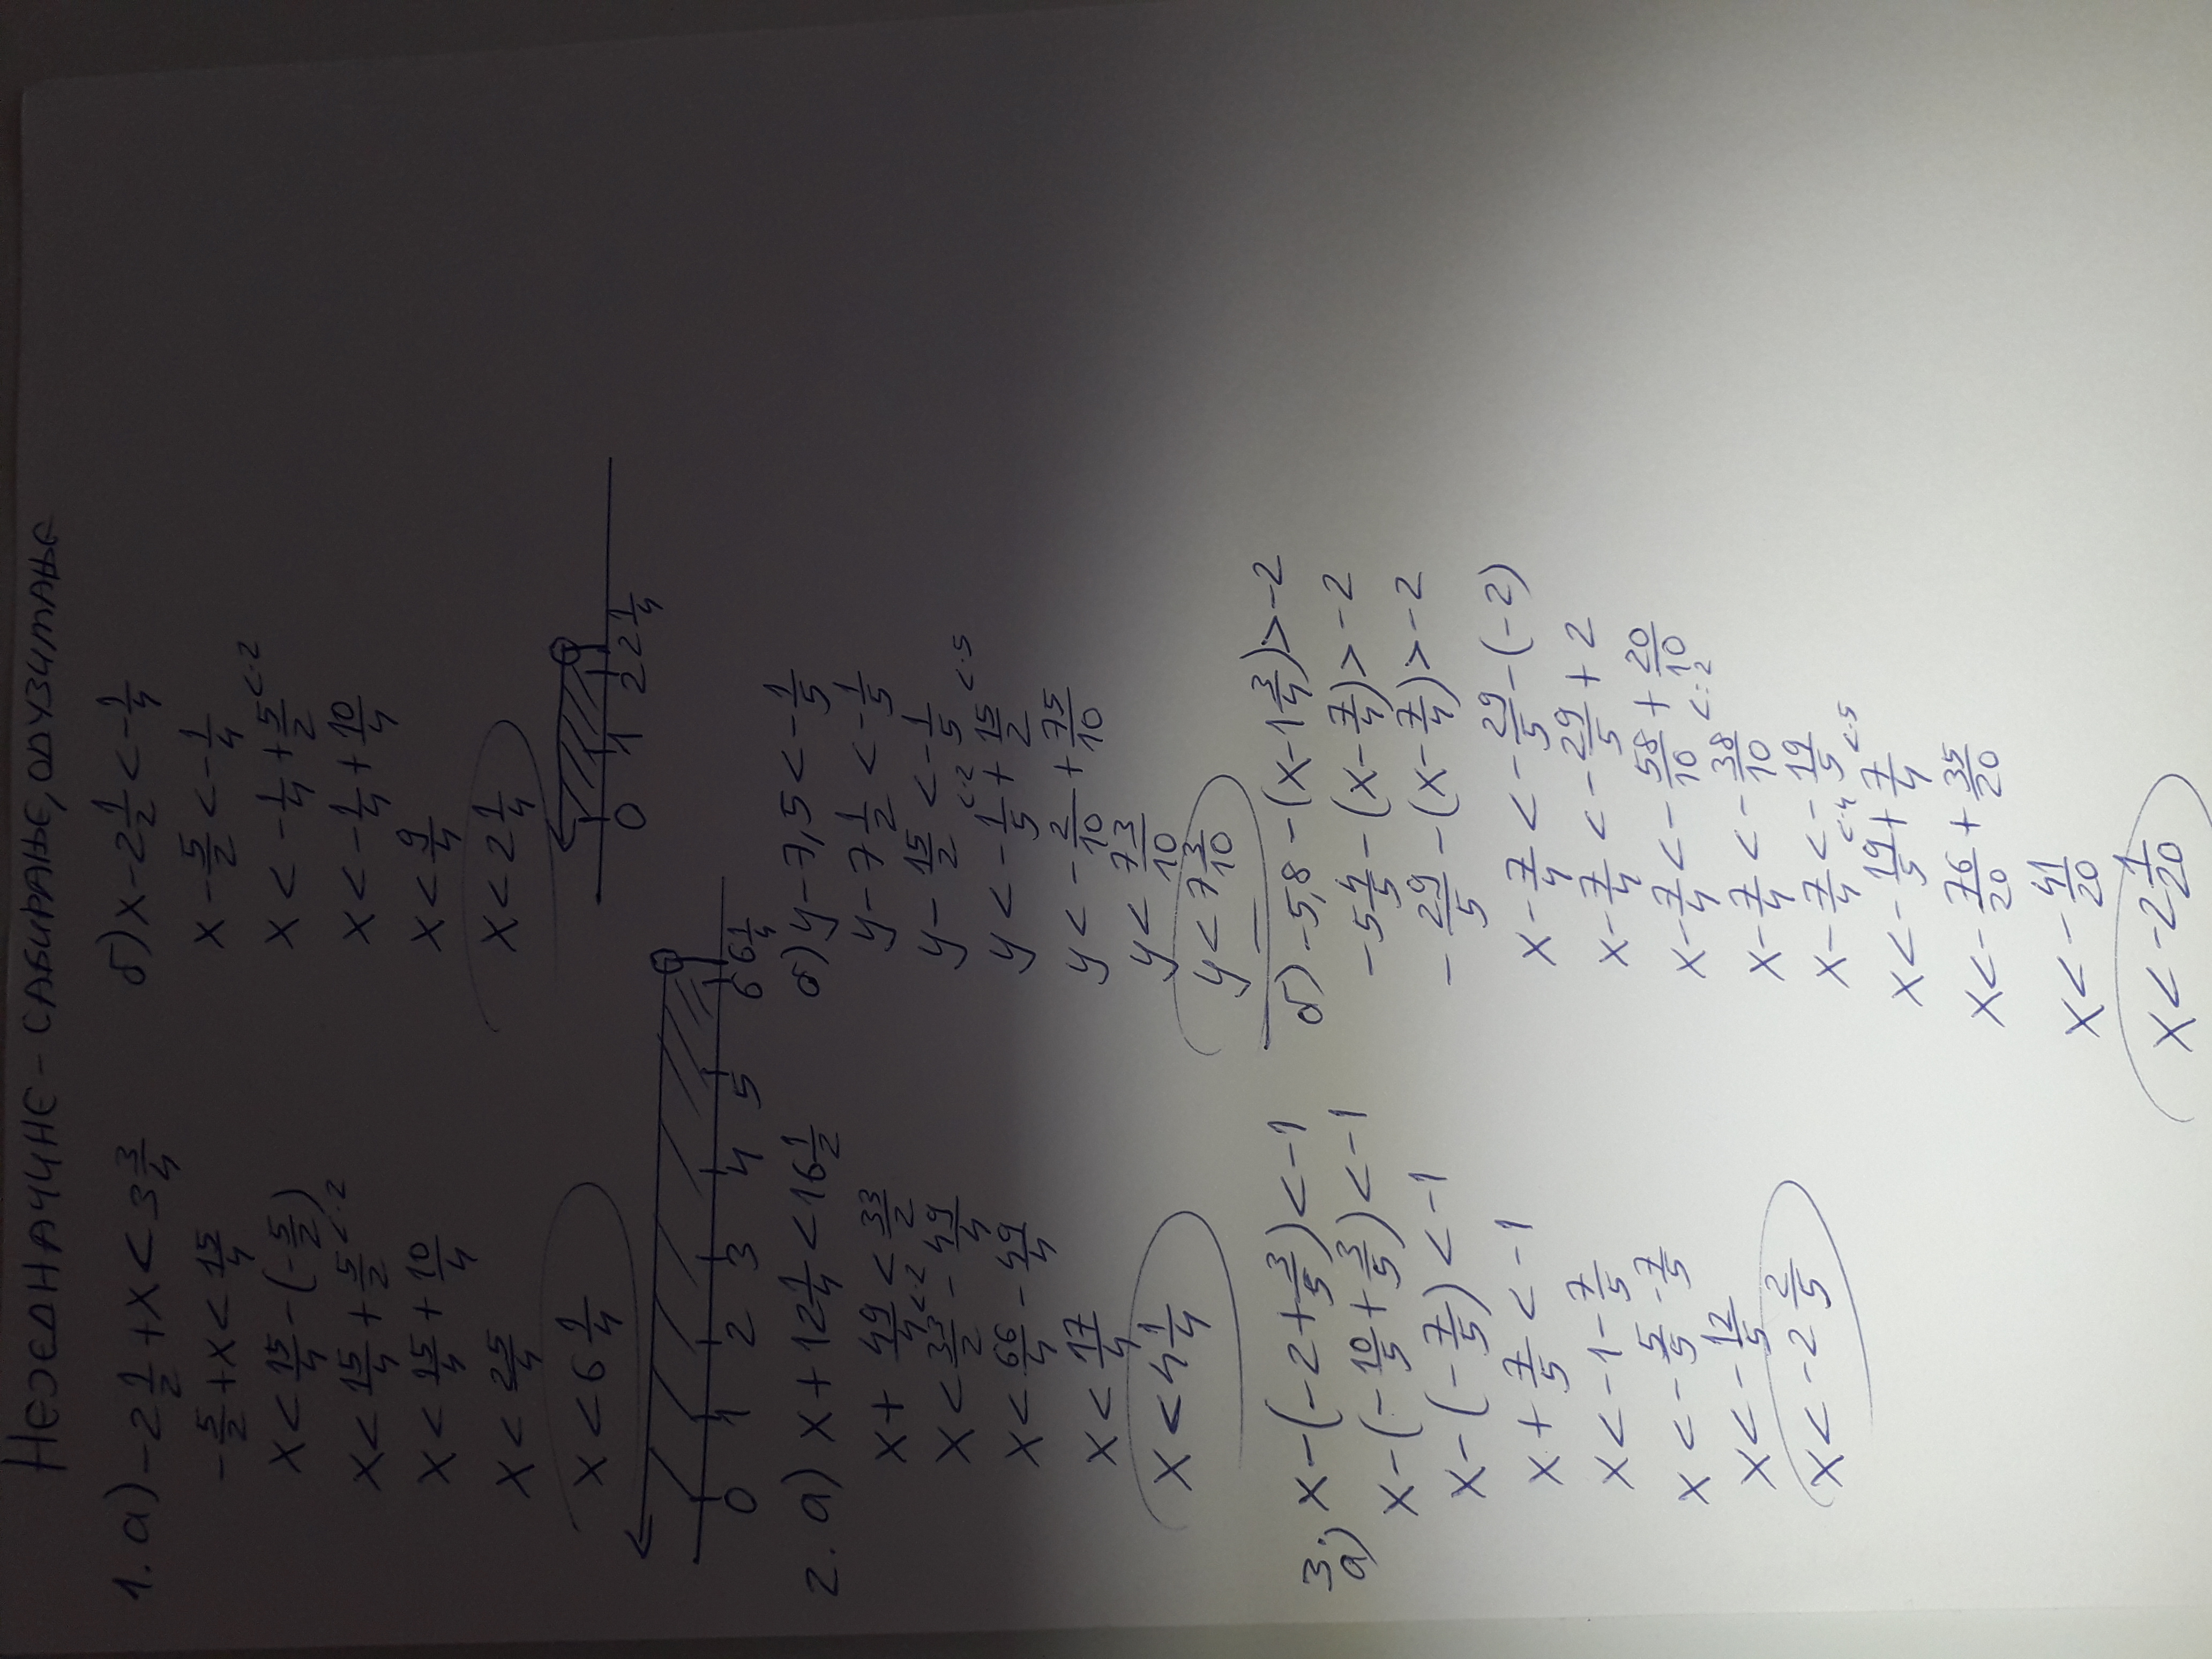 НЕЈЕДНАЧИНЕ - САБИРАЊЕ, ОДУЗИМАЊЕ
1. а) -2 1/2 + x < 3 3/4
-5/2 + x < 15/4
x < 15/4 - (-5/2)
x < 15/4 + 5/2 <·2
x < 15/4 + 10/4
x < 25/4
x < 6 1/4
0 1 2 3 4 5 6 6 1/4
б) x - 2 1/2 < -1/4
x - 5/2 < -1/4
x < -1/4 + 5/2 <·2
x < -1/4 + 10/4
x < 9/4
x < 2 1/4
0 1 2 2 1/4
2. а) x + 12 1/4 < 16 1/2
x + 49/4 < 33/2
x < 33/2 <·2 - 49/4
x < 66/4 - 49/4
x < 17/4
x < 4 1/4
б) y - 7,5 < -1/5
y - 7 1/2 < -1/5
y - 15/2 < -1/5
y < -1/5 <·2 + 15/2 <·5
y < -2/10 + 75/10
y < 73/10
y < 7 3/10
3. а) x - (-2 + 3/5) < -1
x - (-10/5 + 3/5) < -1
x - (-7/5) < -1
x + 7/5 < -1
x < -1 - 7/5
x < -5/5 - 7/5
x < -12/5
x < -2 2/5
б) -5,8 - (x - 1 3/4) > -2
-5 4/5 - (x - 7/4) > -2
-29/5 - (x - 7/4) > -2
x - 7/4 < -29/5 - (-2)
x - 7/4 < -29/5 + 2
x - 7/4 < -58/10 + 20/10
x - 7/4 < -38/10 <:2
x - 7/4 < -19/5
x < -19/5 <·4 + 7/4 <·5
x < -76/20 + 35/20
x < -41/20
x < -2 1/20